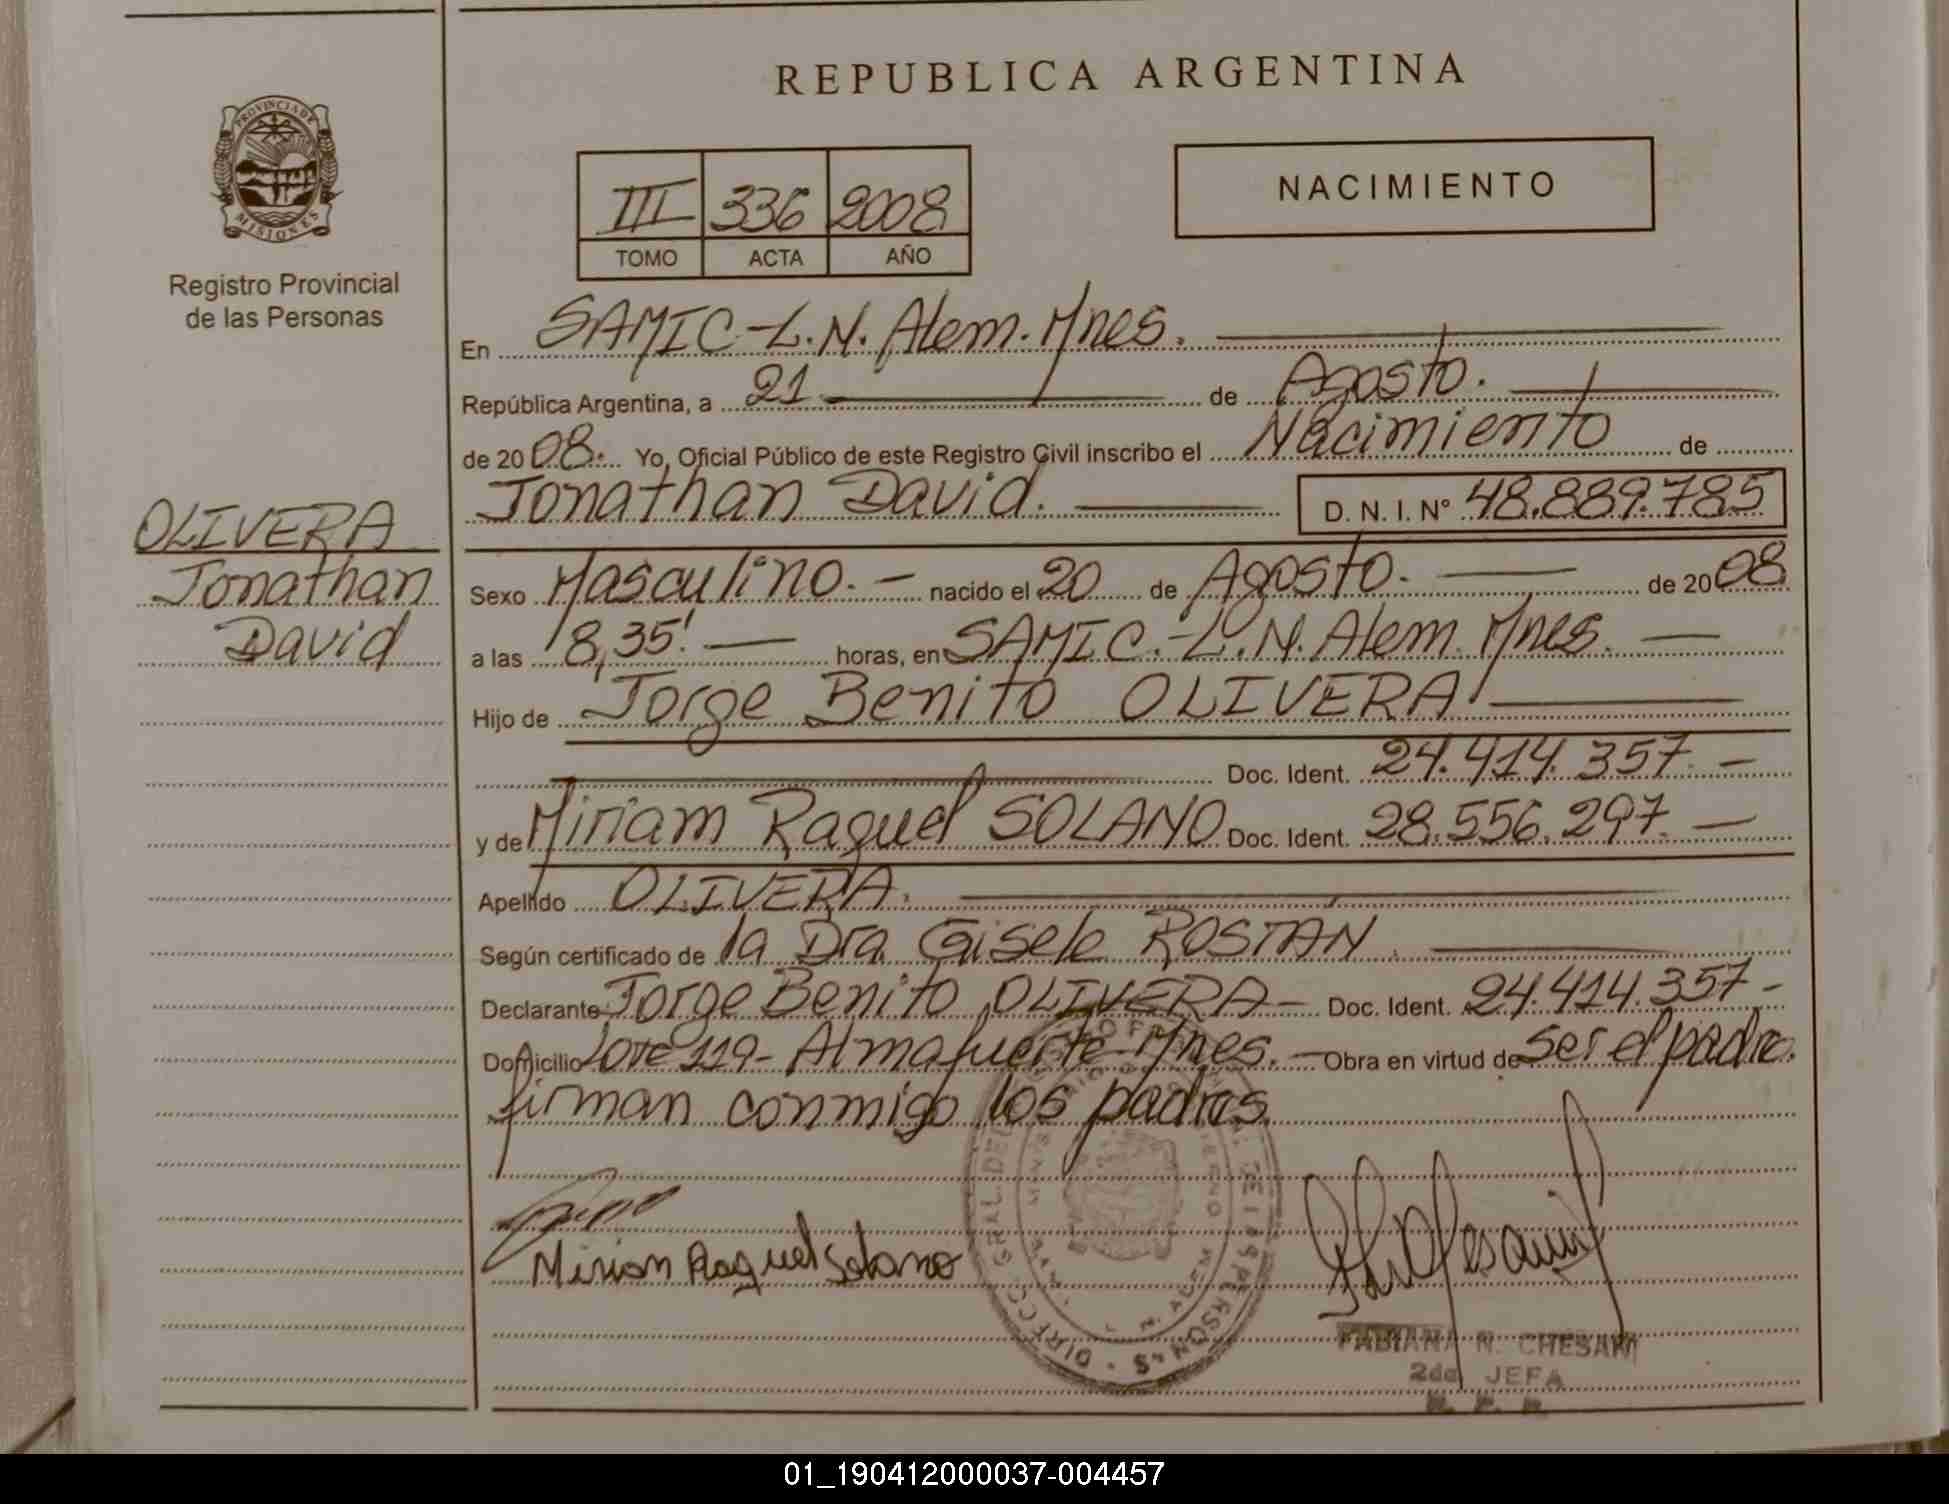 REPUBLICA ARGENTINA
PROVINCIA DE
MISIONES
Registro Provincial
de las Personas
III 336 2008
TOMO ACTA AÑO
NACIMIENTO
En SAMIC-L.N. Alem. Mnes.
República Argentina, a 21 de Agosto.
de 2008. Yo, Oficial Público de este Registro Civil inscribo el Nacimiento de
Jonathan David. D. N. I. Nº 48.889.785
OLIVERA
Jonathan
David
Sexo Masculino. - nacido el 20 de Agosto. de 2008
a las 8,35' horas, en SAMIC.-L.N. Alem. Mnes.
Hijo de Jorge Benito OLIVERA
Doc. Ident. 24.414.357. -
y de Miriam Raquel SOLANO Doc. Ident. 28.556.297. -
Apellido OLIVERA.
Según certificado de la Dra Gisele ROSTÁN.
Declarante Jorge Benito OLIVERA- Doc. Ident. 24.414.357-
Domicilio Lote 119- Almafuerte-Mnes. - Obra en virtud de ser el padre.
firman conmigo los padres.
Mirian Raquel Solano
FABIANA N. CHESANI
2da JEFA
01_190412000037-004457